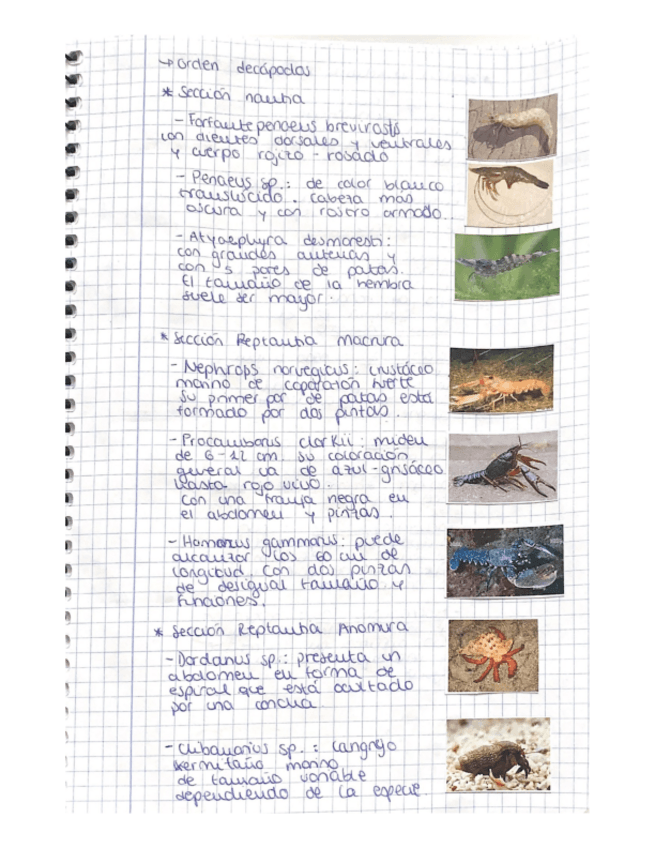 → Orden decápodos
* Sección nauha
- Farfantepenaeus brevirostis
con dientes dorsales y ventrales
y cuerpo rojizo - rosado
- Penaeus sp.: de color blanco
translucido. cabeza mas
oscura y con rostro armado.
- Atyaephyra desmoresti:
con grandes antenas y
con 5 pares de patas.
El tamaño de la hembra
suele ser mayor.
* Sección Reptauha Macrura
- Nephrops norvegicus: crustáceo
marino de caparazon fuerte
su primer par de patas está
formado por dos pinzas.
- Procambarus clarkii: miden
de 6-12 cm. su coloración
general va de azul-grisáceo
hasta rojo vivo.
con una franja negra en
el abdomen y pinzas.
- Homarus gammarus: puede
alcanzar los 60 cm de
longitud. con dos pinzas
de desigual tamaño y
funciones.
* Sección Reptauha Anomura
- Dardanus sp.: presenta un
abdomen en forma de
espiral que está ocultado
por una concha.
- Clibanarius sp.: cangrejo
hermitaño marino
de tamaño variable
dependiendo de la especie.